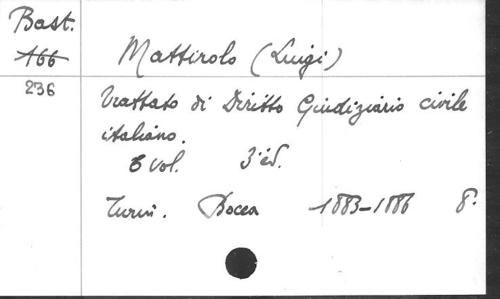 Bast.
166
Mattirolo (Luigi)
236
Trattato di Diritto Giudiziario civile
italiano.
6 vol. 3e éd.
Turin. Bocca 1883-1886 8°.